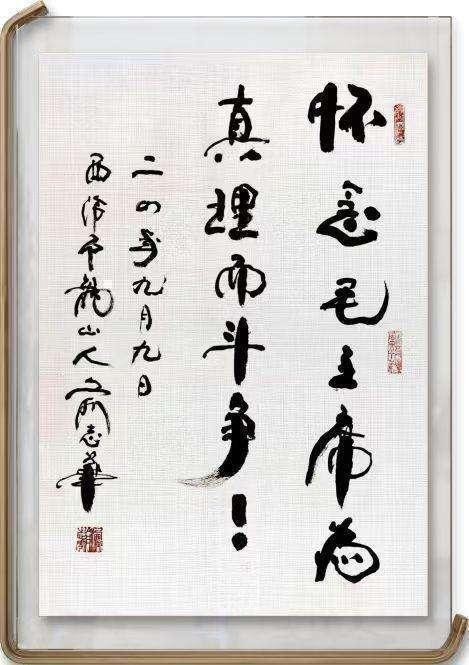 怀念毛主席为
真理而斗争！
二〇四年九月九日
西泠印龙山人
志华